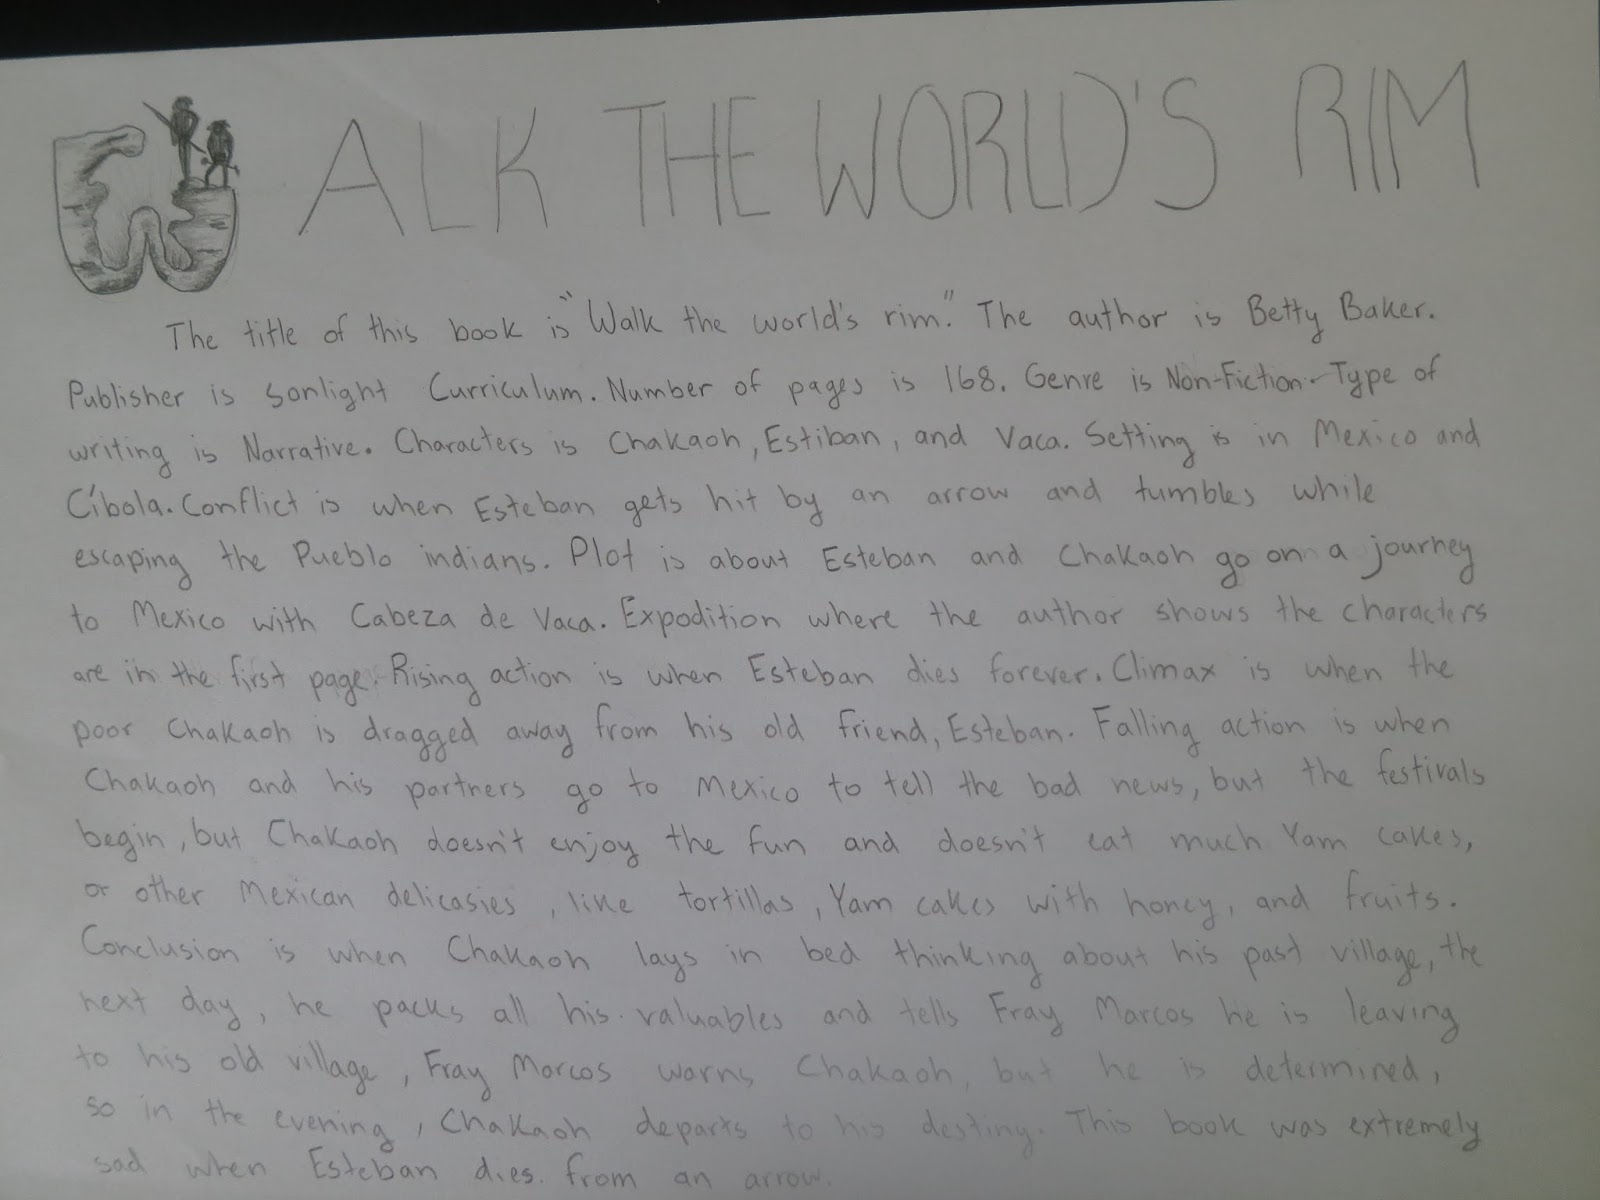 WALK THE WORLD'S RIM
The title of this book is "Walk the world's rim." The author is Betty Baker.
Publisher is Sonlight Curriculum. Number of pages is 168. Genre is Non-Fiction. Type of
writing is Narrative. Characters is Chakaoh, Estiban, and Vaca. Setting is in Mexico and
Cíbola. Conflict is when Esteban gets hit by an arrow and tumbles while
escaping the Pueblo indians. Plot is about Esteban and Chakaoh go on a journey
to Mexico with Cabeza de Vaca. Expodition where the author shows the characters
are in the first page. Rising action is when Esteban dies forever. Climax is when the
poor Chakaoh is dragged away from his old friend, Esteban. Falling action is when
Chakaoh and his partners go to Mexico to tell the bad news, but the festivals
begin, but Chakaoh doesn't enjoy the fun and doesn't eat much Yam cakes,
or other Mexican delicasies, like tortillas, Yam cakes with honey, and fruits.
Conclusion is when Chakaoh lays in bed thinking about his past village, the
next day, he packs all his valuables and tells Fray Marcos he is leaving
to his old village, Fray Marcos warns Chakaoh, but he is determined,
so in the evening, Chakaoh departs to his destiny. This book was extremely
sad when Esteban dies. from an arrow.